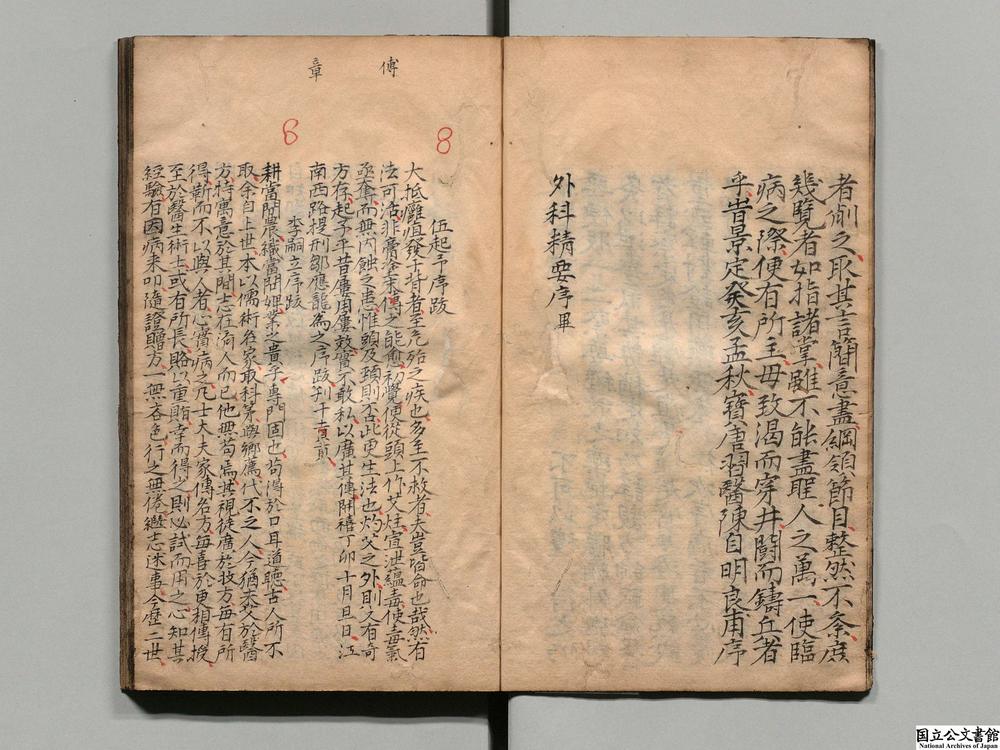 者刪之取其言簡意盡綱領節目整然不紊庶
幾覽者如指諸掌雖不能盡聖人之萬一使臨
病之際便有所主毋致渴而穿井鬪而鑄兵者
乎旹景定癸亥孟秋寶唐習醫陳自明良甫序
外科精要序畢
傅
章
8
8
伍起予序跋
大抵癰疽發于背者至危殆之疾也多至不救者夫豈皆命也哉然有
法可活非膏塗末傅之能愈初覺便從頭上作艾炷宣泄蘊毒使毒氣
亟奪而無內蝕之患惟頭及頸則否此更生法也灼艾之外則又有奇
方存起予平昔屢用屢效實不敢私以廣其傳開禧丁卯十月旦日江
南西路提刑鄒應龍為之序跋刊于
李嗣立序跋
耕當問農織當問婢業之貴乎專門固也苟得於口耳道聽古人所不
取余自上世本以儒術名家取科第與鄉薦代不乏人今猶未艾於醫
方特寓意於其間志在濟人而已他無苟焉其視徒廣於技方每有所
得靳而不以與人者心實病之凡士大夫家傳名方每喜於更相傳授
至於醫生術士或有所長賂以重賄幸而得之則必試而用之心知其
經驗有因病来叩隨證贈方一無吝色行之無倦繼志述事今歷二世
国立公文書館
National Archives of Japan